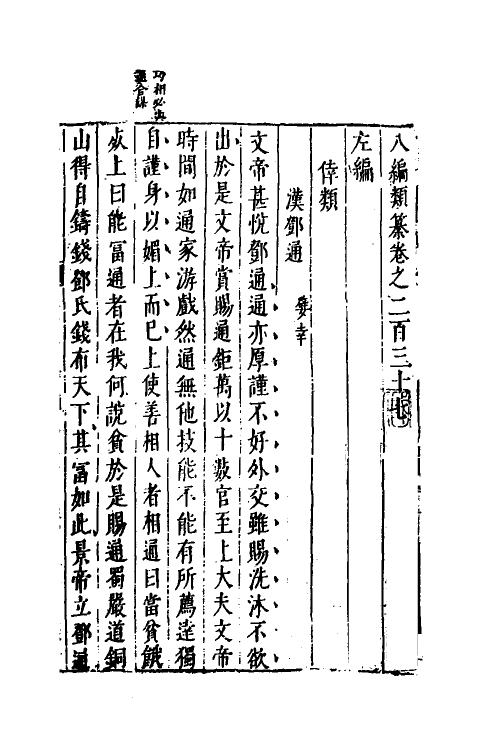 八編類纂卷之二百三十七
左編
倖類
漢鄧通 嬖幸
文帝甚悅鄧通通亦厚謹不好外交雖賜洗沐不欲
出於是文帝賞賜通鉅萬以十數官至上大夫文帝
時間如通家游戲然通無他技能不能有所薦達獨
自謹身以媚上而已上使善相人者相通曰當貧餓
死上曰能富通者在我何說貧於是賜通蜀嚴道銅
山得自鑄錢鄧氏錢布天下其富如此景帝立鄧通